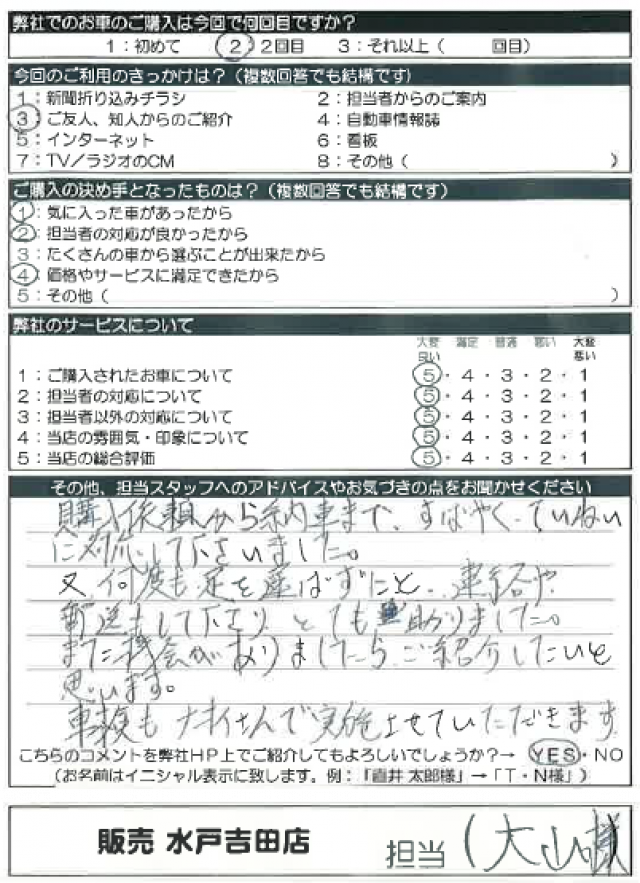 弊社でのお車のご購入は今回で何回目ですか？
1：初めて　2：2回目　3：それ以上（　　回目）
今回のご利用のきっかけは？（複数回答でも結構です）
1：新聞折り込みチラシ　2：担当者からのご案内
3：ご友人、知人からのご紹介　4：自動車情報誌
5：インターネット　6：看板
7：TV／ラジオのCM　8：その他（　　）
ご購入の決め手となったものは？（複数回答でも結構です）
1：気に入った車があったから
2：担当者の対応が良かったから
3：たくさんの車から選ぶことが出来たから
4：価格やサービスに満足できたから
5：その他（　　）
弊社のサービスについて
大変良い　満足　普通　悪い　大変悪い
1：ご購入されたお車について　5・4・3・2・1
2：担当者の対応について　5・4・3・2・1
3：担当者以外の対応について　5・4・3・2・1
4：当店の雰囲気・印象について　5・4・3・2・1
5：当店の総合評価　5・4・3・2・1
その他、担当スタッフへのアドバイスやお気づきの点をお聞かせください
購入依頼から納車まで、すばやく、ていねい
に対応して下さいました。
又、何度も足を運ばずにと、連絡や
郵送もして下さり とても助かりました。
また機会がありましたら、ご紹介したいと
思います。
車検も ナオイさんで実施させていただきます
こちらのコメントを弊社HP上でご紹介してもよろしいでしょうか？→ YES・NO
（お名前はイニシャル表示に致します。例：「直井 太郎様」→「T・N様」）
販売 水戸吉田店　担当（大山様）